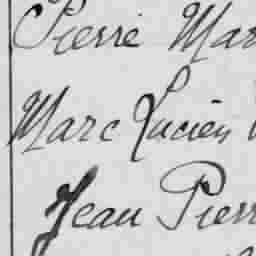 Pierre Mar
Marc Lucien
Jean Pierr